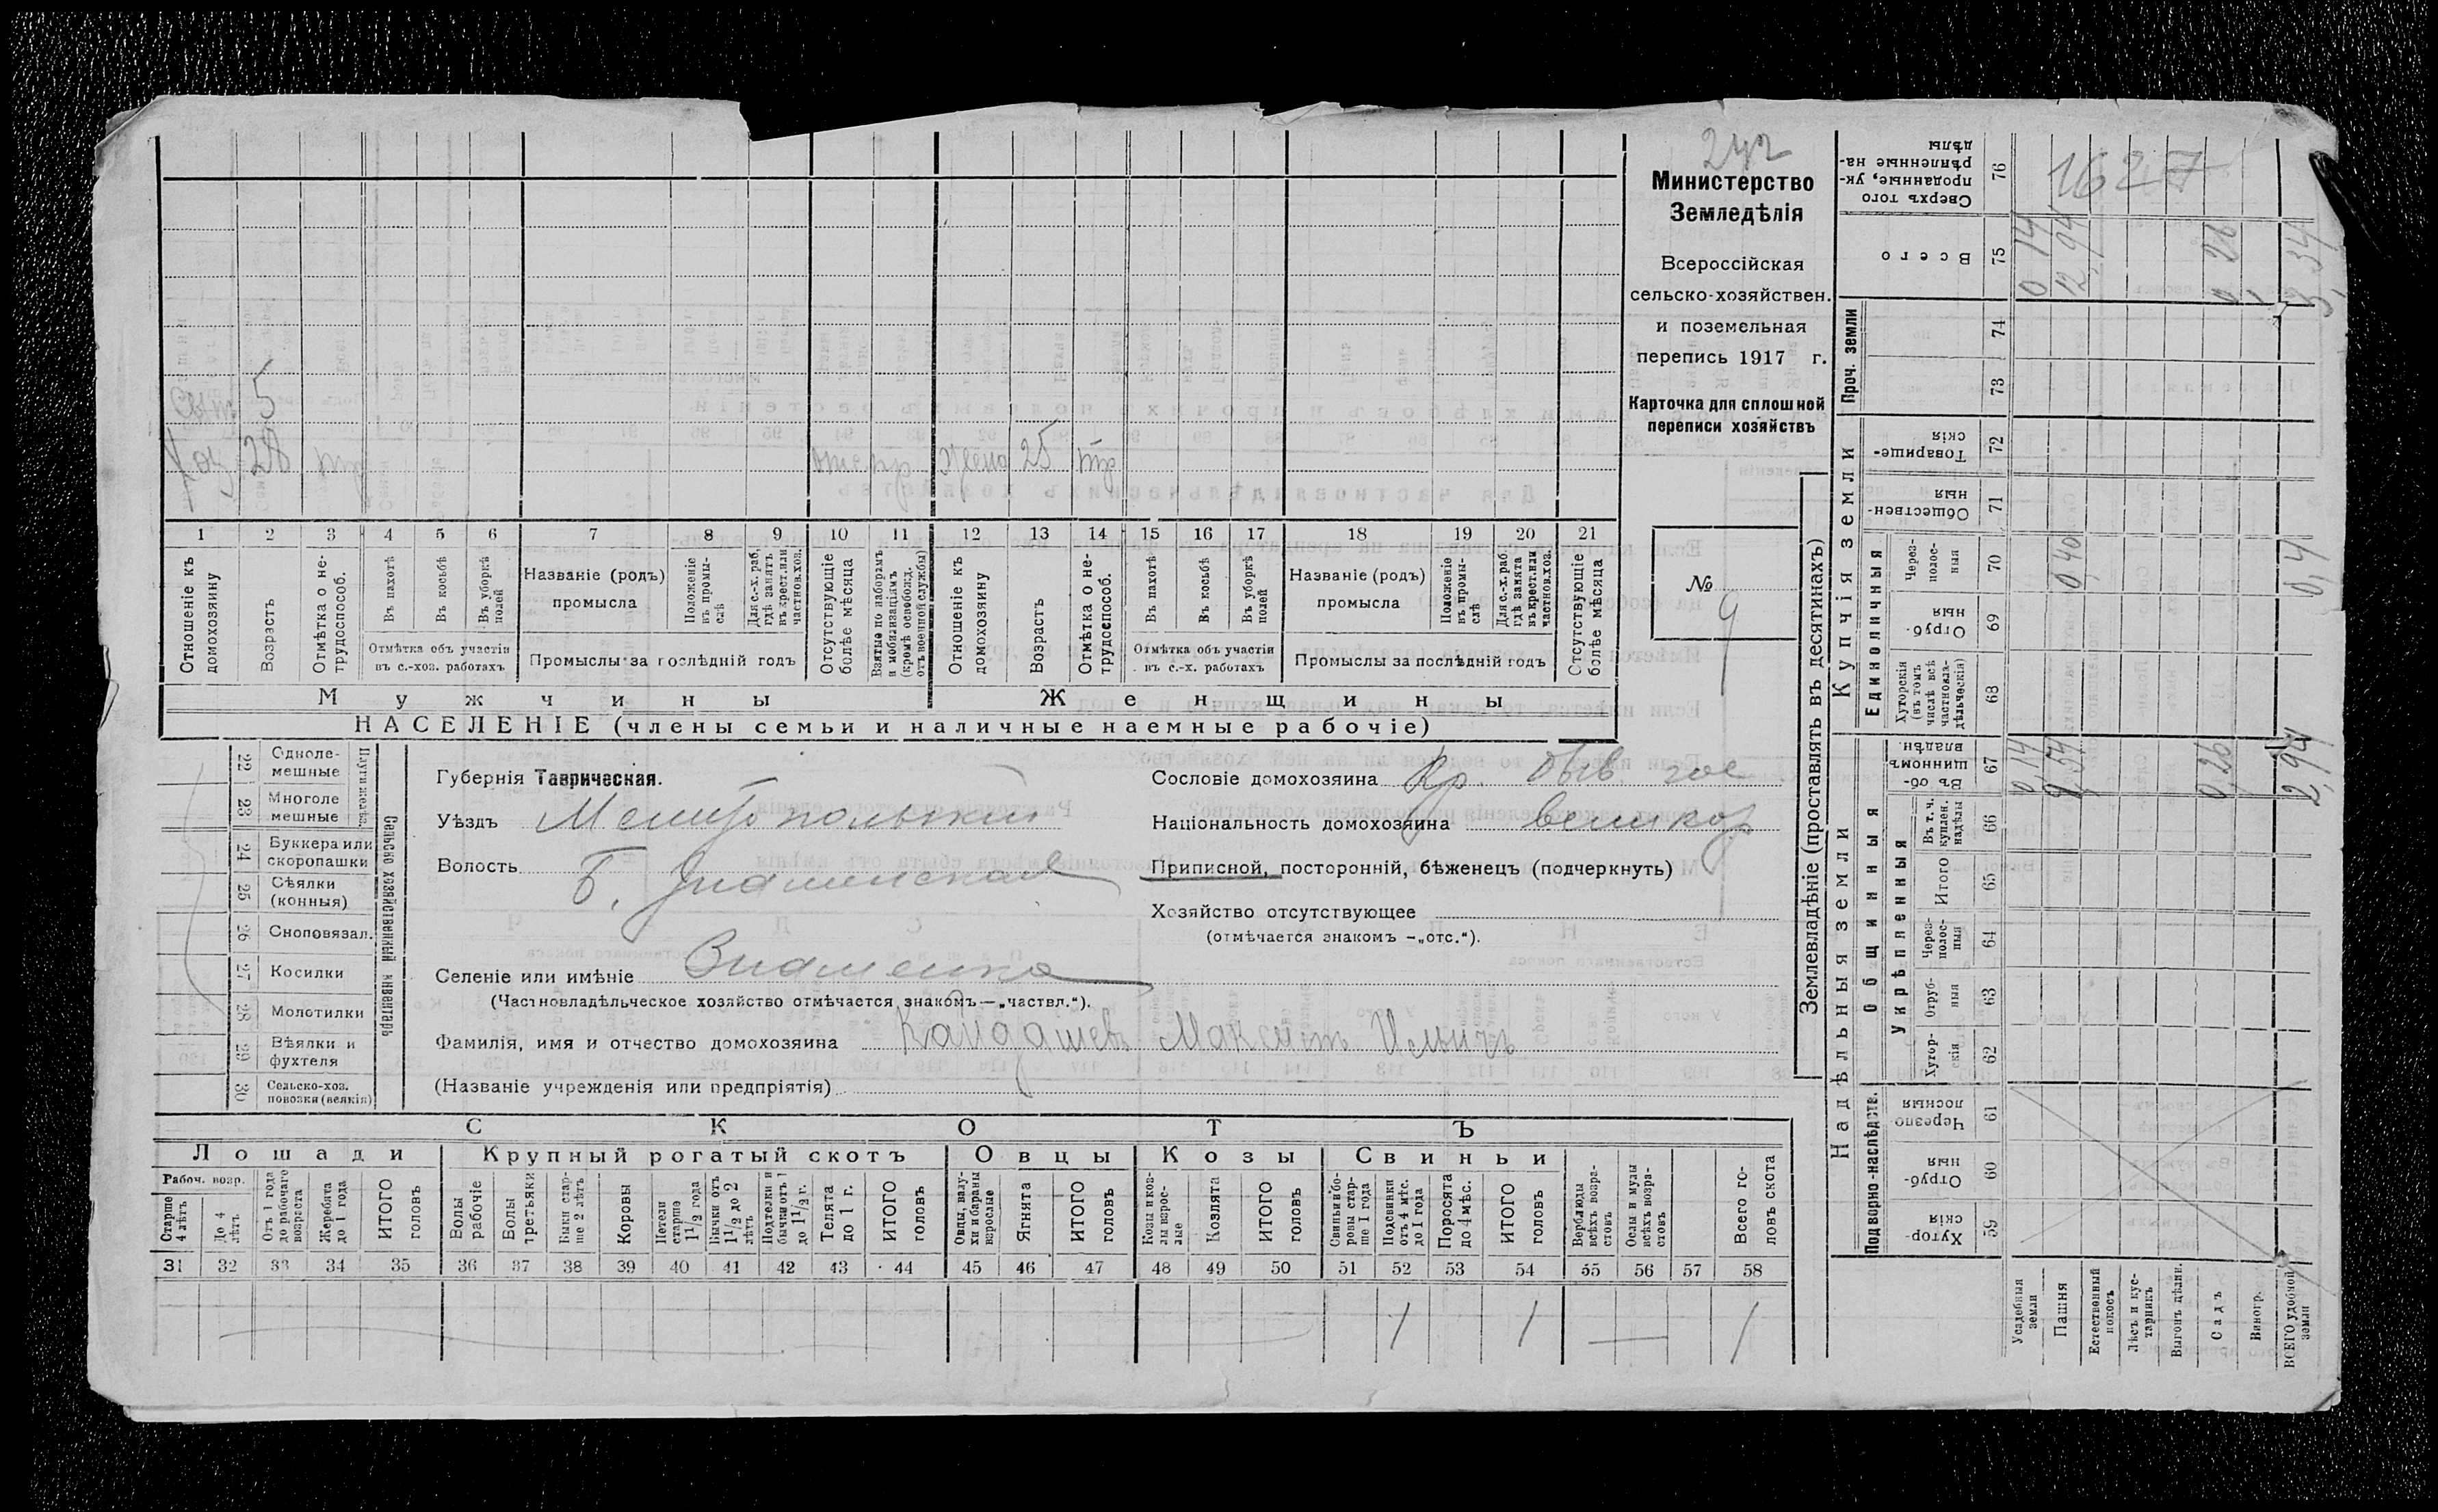 Министерство
Земледѣлія
Всероссійская
сельско-хозяйствен.
и поземельная
перепись 1917 г.
Карточка для сплошной
переписи хозяйствъ
№ 9
5
Хоз 28 тр жена 25 тр
1 2 3 4 5 6 7 8 9 10 11 12 13 14 15 16 17 18 19 20 21
Отношеніе къ домохозяину
Возрастъ
Отмѣтка о нетрудоспособ.
Въ пахотѣ
Въ косьбѣ
Въ уборкѣ полей
Отмѣтка объ участіи
въ с.-хоз. работахъ
Названіе (родъ)
промысла
Положеніе въ промыслѣ
Для с.-х. раб. гдѣ занятъ въ крест. или частнов. хоз.
Промыслы за послѣдній годъ
Отсутствующіе болѣе мѣсяца
Взятые по наборамъ и мобилизаціямъ (кромѣ освобожд. отъ военной службы)
Отношеніе къ домохозяину
Возрастъ
Отмѣтка о нетрудоспособ.
Въ пахотѣ
Въ косьбѣ
Въ уборкѣ полей
Отмѣтка объ участіи
въ с.-х. работахъ
Названіе (родъ)
промысла
Положеніе въ промыслѣ
Для с.-х. раб. гдѣ занята въ крест. или частнов. хоз.
Промыслы за послѣдній годъ
Отсутствующіе болѣе мѣсяца
Мужчины Женщины
НАСЕЛЕНІЕ (члены семьи и наличные наемные рабочіе)
Сельско хозяйственный инвентарь
Плуги желѣз.
22 Однолемешные
23 Многолемешные
24 Буккера или скоропашки
25 Сѣялки (конныя)
26 Сноповязал.
27 Косилки
28 Молотилки
29 Вѣялки и фухтеля
30 Сельско-хоз. повозки (всякія)
Губернія Таврическая.
Уѣздъ Мелитопольскій
Волость Б. Знаменская
Селеніе или имѣніе Знаменка
(Частновладѣльческое хозяйство отмѣчается знакомъ—„частвл.“).
Сословіе домохозяина Кр.
Національность домохозяина великор
Приписной, посторонній, бѣженецъ (подчеркнуть)
Хозяйство отсутствующее
(отмѣчается знакомъ -„отс.“).
Фамилія, имя и отчество домохозяина Максимъ Ильичъ
(Названіе учрежденія или предпріятія)
СКОТЪ
Лошади Крупный рогатый скотъ Овцы Козы Свиньи
Рабоч. возр.
Старше 4 лѣтъ
До 4 лѣтъ
Отъ 1 года до рабочаго возраста
Жеребята до 1 года
ИТОГО головъ
Волы рабочіе
Волы третьяки
Быки старше 2 лѣтъ
Коровы
Нетели старше 1 1/2 года
Бычки отъ 1 1/2 до 2 лѣтъ
Подтелки и бычки отъ 1 до 1 1/2 г.
Телята до 1 г.
ИТОГО головъ
Овцы, валухи и бараны взрослые
Ягнята
ИТОГО головъ
Козы и козлы взрослые
Козлята
ИТОГО головъ
Свиньи и боровы старше 1 года
Подсвинки отъ 4 мѣс. до 1 года
Поросята до 4 мѣс.
ИТОГО головъ
Верблюды всѣхъ возрастовъ
Ослы и мулы всѣхъ возрастовъ
Всего головъ скота
31 32 33 34 35 36 37 38 39 40 41 42 43 44 45 46 47 48 49 50 51 52 53 54 55 56 57 58
1 1 — 1
Землевладѣніе (проставлять въ десятинахъ)
Надѣльныя земли
Купчія земли
Проч. земли
Подворно-наслѣдств.
Общинныя
Укрѣпленныя
Единоличныя
Хуторскія 59
Отрубныя 60
Черезполосныя 61
Хуторскія 62
Отрубныя 63
Черезполосныя 64
Итого 65
Въ т. ч. куплен. надѣлы 66
Въ общинномъ владѣн. 67
Хуторскія (въ томъ числѣ всѣ частновладѣльческія) 68
Отрубныя 69
Черезполосныя 70
Общественныя 71
Товарищескія 72
73
74
Всего 75
Сверхъ того проданные, укрѣпленные надѣлы 76
Усадебныя земли 0,14 0,14
Пашня 2,54 0,40 2,94
Естественный покосъ
Лѣсъ и кустарникъ
Выгонъ дѣлин.
Садъ 0,26 0,26
Виногр.
ВСЕГО удобной земли 2,94 0,4 3,34
1627